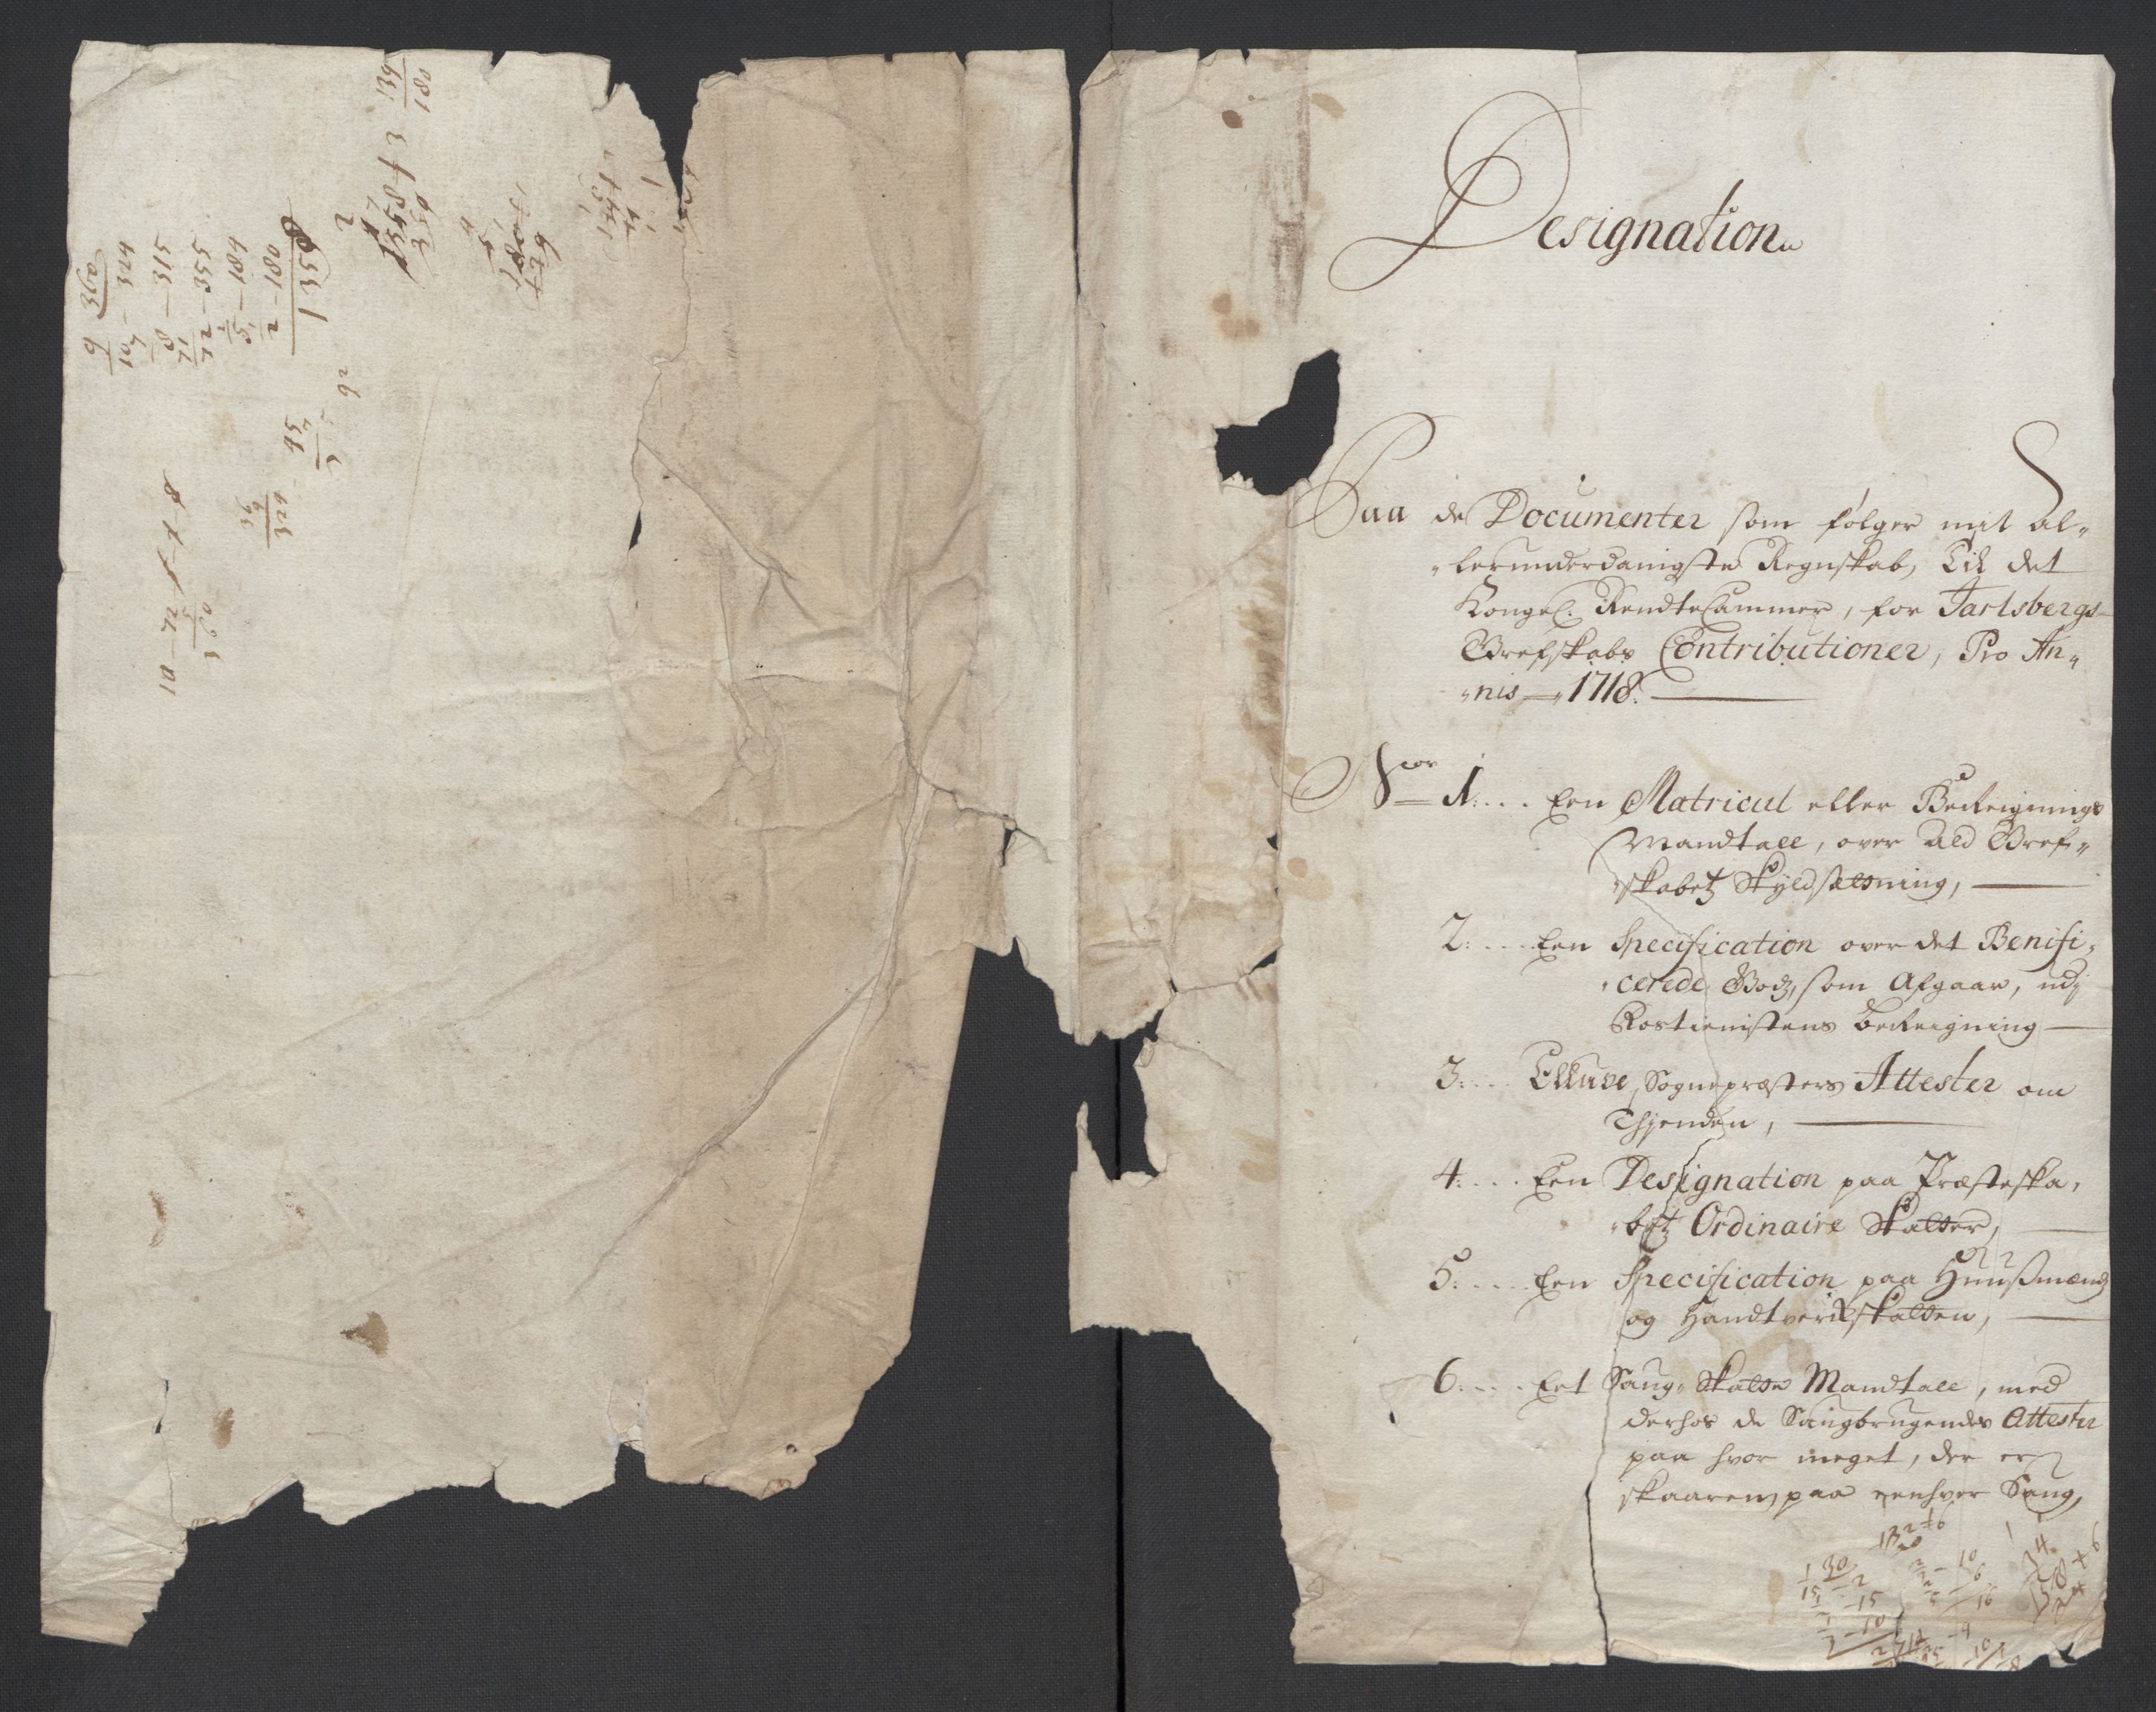 Designation
Paa de Documenter som følger mit Al„
„lerunderdanigste Regnskab, Til det
Kongel: RendteCammer, for Jarlsbergs
Grefskabs Contributioner, Pro An„
„nis — 1718.
No 1. . . . Een Matricul eller Bereignings
Mandtall, over Ald Gref„
„skabetz Skyldsætning,
2. . . . Een Specification over det Benifi„
„cerede Godz, som Afgaar, udj
Rostienistens bereigning
3. . . . Elluve Sognepræsters Attester om
Thjenden,
4. . . . Een Designation paa Præsteska„
„betz Ordinaire Skatter,
5. . . . Een Specification paa Huusmænds
og Handtverksskatten,
6. . . . Eet Saug„ Skatte Mandtall, med
derhos de Saugbrugendes Attester
paa hvor meget, der er
skaaren paa eenhver Saug,
360
324
315
355
184
180